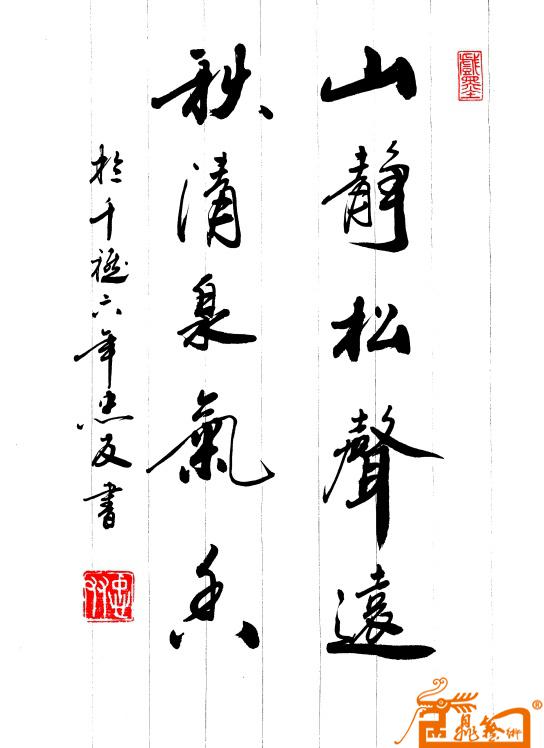 戲墨
山靜松聲遠
秋清泉氣香
於千禧六年忠友書
忠友